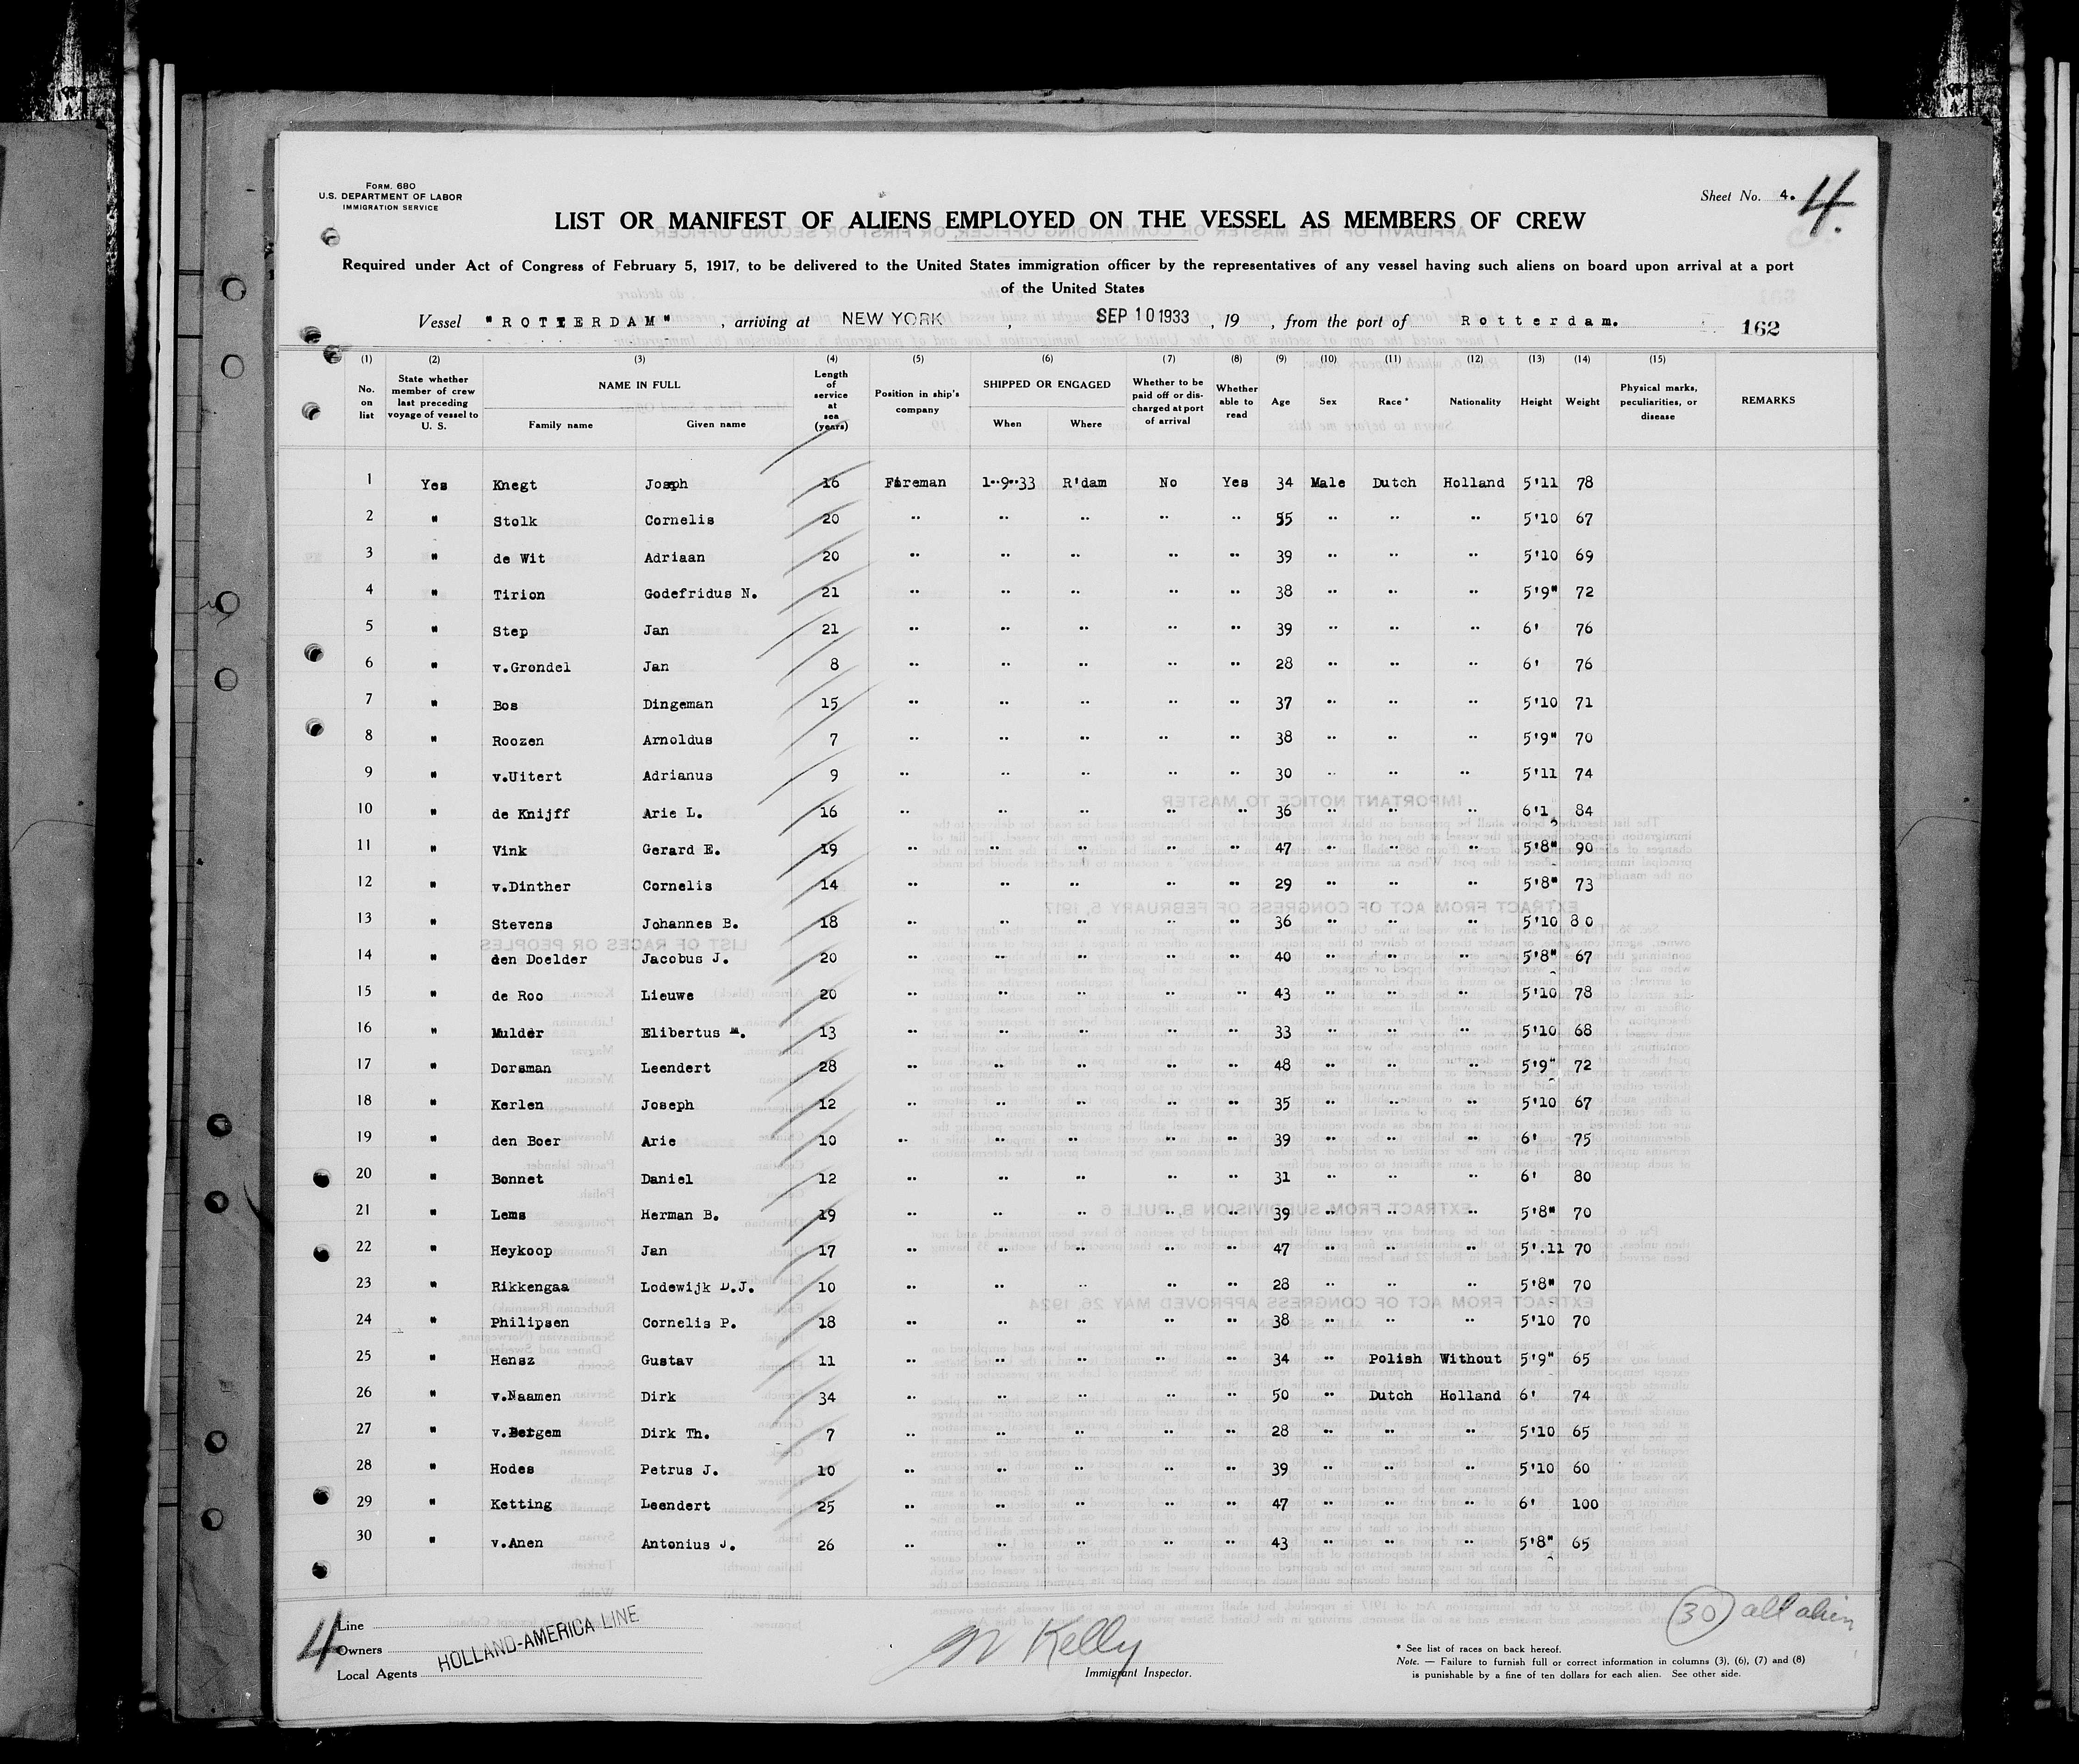 Form. 680
U.S. DEPARTMENT OF LABOR
IMMIGRATION SERVICE
Sheet No. 4. 4.
LIST OR MANIFEST OF ALIENS EMPLOYED ON THE VESSEL AS MEMBERS OF CREW
Required under Act of Congress of February 5, 1917, to be delivered to the United States immigration officer by the representatives of any vessel having such aliens on board upon arrival at a port
of the United States
Vessel "ROTTERDAM" , arriving at NEW YORK , SEP 10 1933 , 19 , from the port of Rotterdam. 162
(1) (2) (3) (4) (5) (6) (7) (8) (9) (10) (11) (12) (13) (14) (15)
No. on list State whether member of crew last preceding voyage of vessel to U. S. NAME IN FULL Family name Given name Length of service at sea (years) Position in ship's company SHIPPED OR ENGAGED When Where Whether to be paid off or discharged at port of arrival Whether able to read Age Sex Race * Nationality Height Weight Physical marks, peculiarities, or disease REMARKS
1 Yes Knegt Joseph 16 Fireman 1-9-33 R'dam No Yes 34 Male Dutch Holland 5'11 78
2 " Stolk Cornelis 20 " " " " " 55 " " " 5'10 67
3 " de Wit Adriaan 20 " " " " " 39 " " " 5'10 69
4 " Tirion Godefridus N. 21 " " " " " 38 " " " 5'9" 72
5 " Step Jan 21 " " " " " 39 " " " 6' 76
6 " v.Grondel Jan 8 " " " " " 28 " " " 6' 76
7 " Bos Dingeman 15 " " " " " 37 " " " 5'10 71
8 " Roozen Arnoldus 7 " " " " " 38 " " " 5'9" 70
9 " v.Uitert Adrianus 9 " " " " " 30 " " " 5'11 74
10 " de Knijff Arie L. 16 " " " " " 36 " " " 6'1 84
11 " Vink Gerard E. 19 " " " " " 47 " " " 5'8" 90
12 " v.Dinther Cornelis 14 " " " " " 29 " " " 5'8" 73
13 " Stevens Johannes B. 18 " " " " " 36 " " " 5'10 80
14 " den Doelder Jacobus J. 20 " " " " " 40 " " " 5'8" 67
15 " de Roo Lieuwe 20 " " " " " 43 " " " 5'10 78
16 " Mulder Elibertus M. 13 " " " " " 33 " " " 5'10 68
17 " Dorsman Leendert 28 " " " " " 48 " " " 5'9" 72
18 " Kerlen Joseph 12 " " " " " 35 " " " 5'10 67
19 " den Boer Arie 10 " " " " " 39 " " " 6' 75
20 " Bonnet Daniel 12 " " " " " 31 " " " 6' 80
21 " Lems Herman B. 19 " " " " " 39 " " " 5'8" 70
22 " Heykoop Jan 17 " " " " " 47 " " " 5'.11 70
23 " Rikkengaa Lodewijk D.J. 10 " " " " " 28 " " " 5'8" 70
24 " Philipsen Cornelis P. 18 " " " " " 38 " " " 5'10 70
25 " Hensz Gustav 11 " " " " " 34 " Polish Without 5'9" 65
26 " v.Naamen Dirk 34 " " " " " 50 " Dutch Holland 6' 74
27 " v.Bergem Dirk Th. 7 " " " " " 28 " " " 5'10 65
28 " Hodes Petrus J. 10 " " " " " 39 " " " 5'10 60
29 " Ketting Leendert 25 " " " " " 47 " " " 6' 100
30 " v.Anen Antonius J. 26 " " " " " 43 " " " 5'8" 65
(30) all alien
4 Line
Owners HOLLAND-AMERICA LINE
Local Agents
Kelly
Immigrant Inspector.
* See list of races on back hereof.
Note. — Failure to furnish full or correct information in columns (3), (6), (7) and (8)
is punishable by a fine of ten dollars for each alien. See other side.